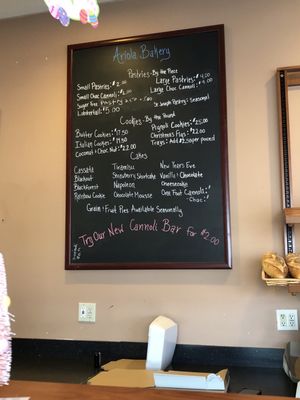 Ariola Bakery
Pastries - By the Piece
Small Pastries - $2.00
Large Pastries - $4.00
Small Choc Cannoli - $2.00
Large Choc Cannoli - $4.00
Sugar free Pastry
Lobstertail - $5.00
St. Joseph Pastries Seasonal
Cookies - By the Pound
Butter Cookies - $17.50
Pignoli Cookies - $25.00
Italian Cookies -
Christmas Figs - $22.00
Coconut + Choc Nut - $22.00
Trays - Add $2.50 per pound
Cakes
Cassata
Tiramisu
New Years Eve
Blackout
Strawberry Shortcake
Vanilla + Chocolate
Blackforest
Napoleon
Cheesecake
Rainbow Cookie
Chocolate Mousse
Oreo Fruit Cannoli
Choc
Grain + Fruit Pies Available Seasonally
Try Our New Cannoli Bar for $2.00